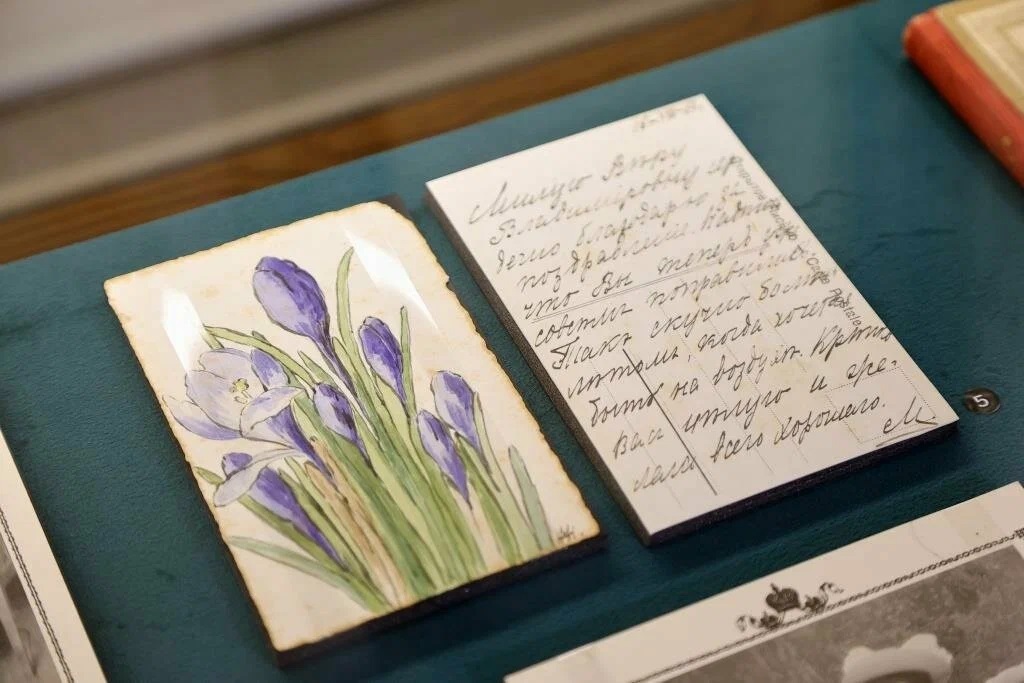 Милую Вѣру
Владимiровну сер
дечно благодарю за
поздравленiе. Надѣюсь
что Вы теперь уже
совсѣмъ поправились.
Такъ скучно болѣть
лѣтомъ, когда хочется
быть на воздухѣ. Крѣпко
Васъ цѣлую и же-
лаю всего хорошаго.
М.
5